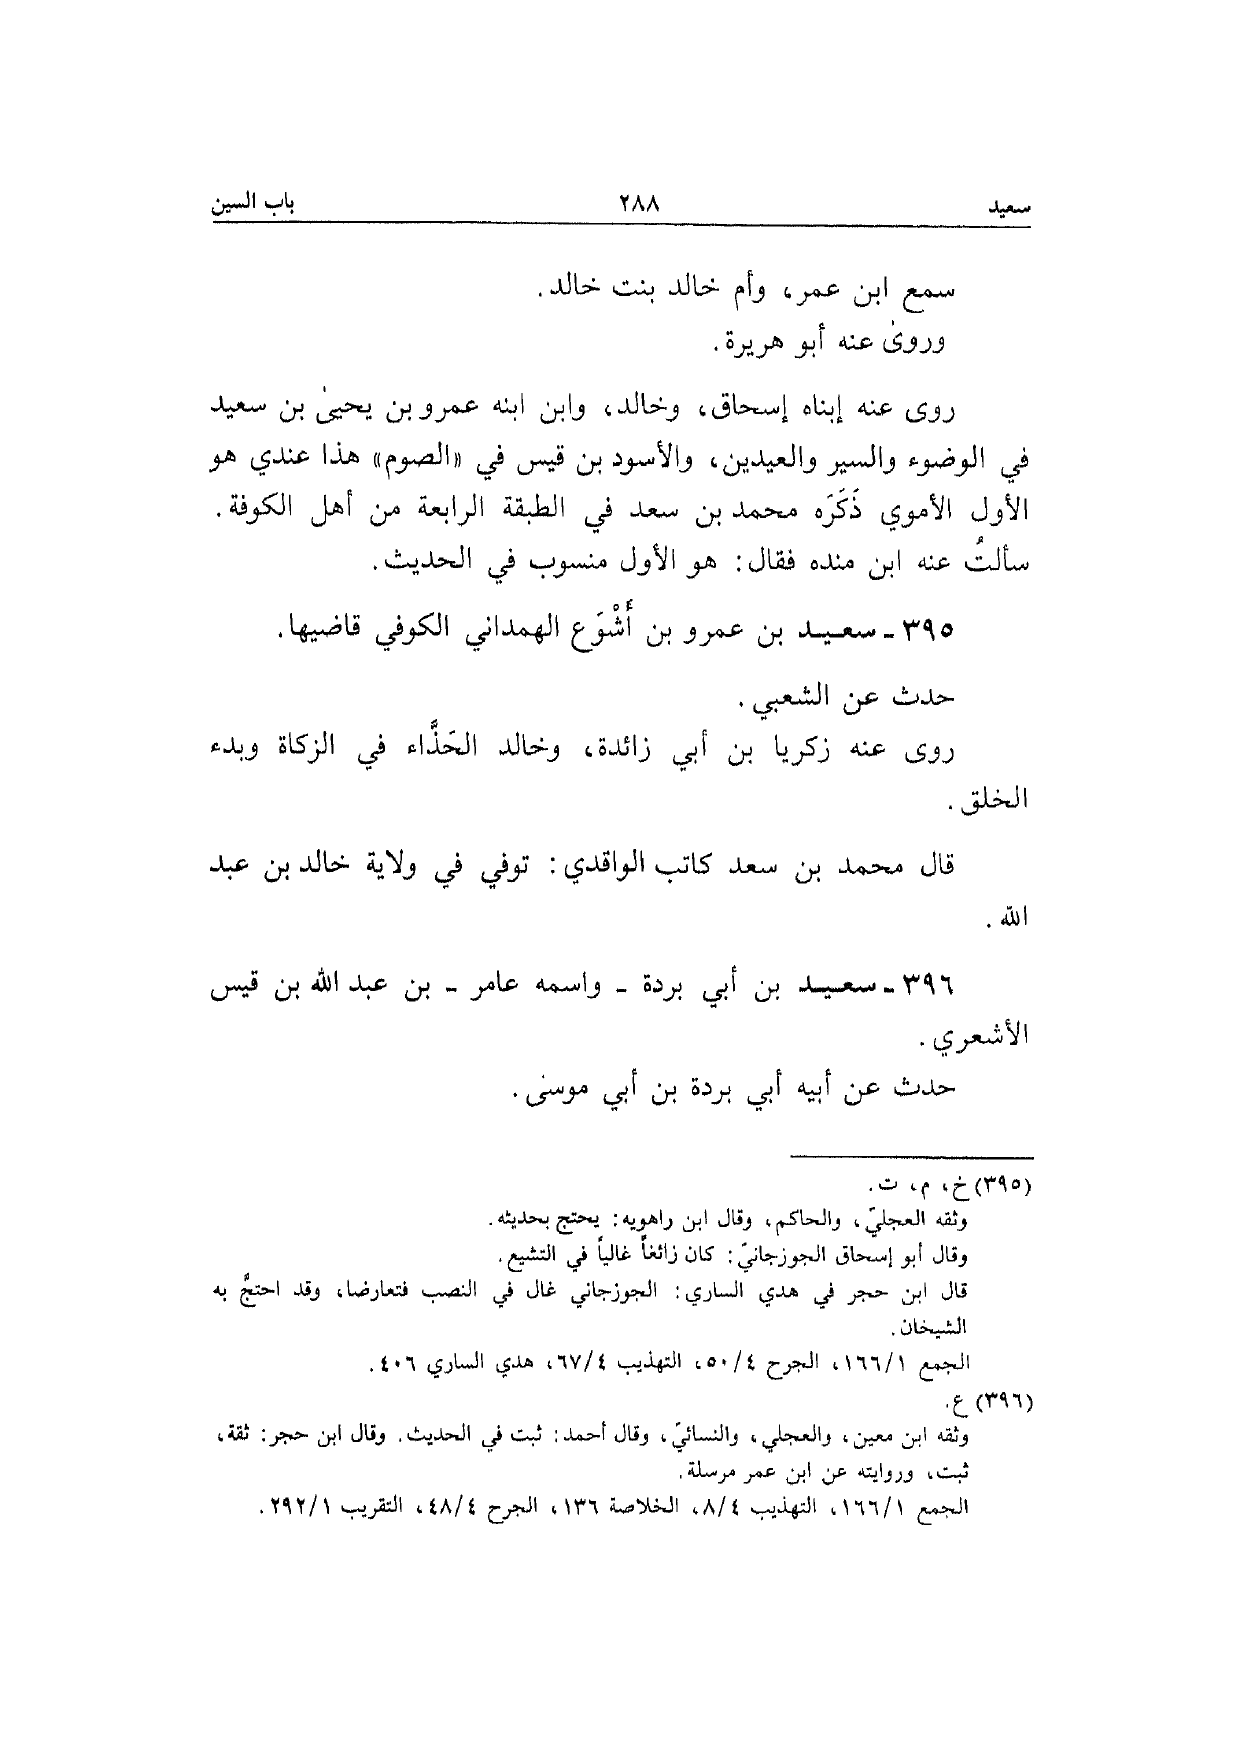 سعيد ٢٨٨ باب السين
سمع ابن عمر، وأم خالد بنت خالد.
وروىٰ عنه أبو هريرة.
روى عنه إبناه إسحاق، وخالد، وابن ابنه عمرو بن يحيىٰ بن سعيد
في الوضوء والسير والعيدين، والأسود بن قيس في «الصوم» هذا عندي هو
الأول الأموي ذَكَرَه محمد بن سعد في الطبقة الرابعة من أهل الكوفة.
سألتُ عنه ابن منده فقال: هو الأول منسوب في الحديث.
٣٩٥ ـ سعيد بن عمرو بن أَشْوَع الهمداني الكوفي قاضيها.
حدث عن الشعبي.
روى عنه زكريا بن أبي زائدة، وخالد الحَذَّاء في الزكاة وبدء
الخلق.
قال محمد بن سعد كاتب الواقدي: توفي في ولاية خالد بن عبد
الله.
٣٩٦ ـ سعيد بن أبي بردة ـ واسمه عامر ـ بن عبد الله بن قيس
الأشعري.
حدث عن أبيه أبي بردة بن أبي موسىٰ.
(٣٩٥) خ، م، ت.
وثقه العجليّ، والحاكم، وقال ابن راهويه: يحتج بحديثه.
وقال أبو إسحاق الجوزجانيّ: كان زائغاً غالياً في التشيع.
قال ابن حجر في هدي الساري: الجوزجاني غال في النصب فتعارضا، وقد احتجَّ به
الشيخان.
الجمع ١/١٦٦، الجرح ٤/٥٠، التهذيب ٤/٦٧، هدي الساري ٤٠٦.
(٣٩٦) ع.
وثقه ابن معين، والعجلي، والنسائيّ، وقال أحمد: ثبت في الحديث. وقال ابن حجر: ثقة،
ثبت، وروايته عن ابن عمر مرسلة.
الجمع ١/١٦٦، التهذيب ٤/٨، الخلاصة ١٣٦، الجرح ٤/٤٨، التقريب ١/٢٩٢.